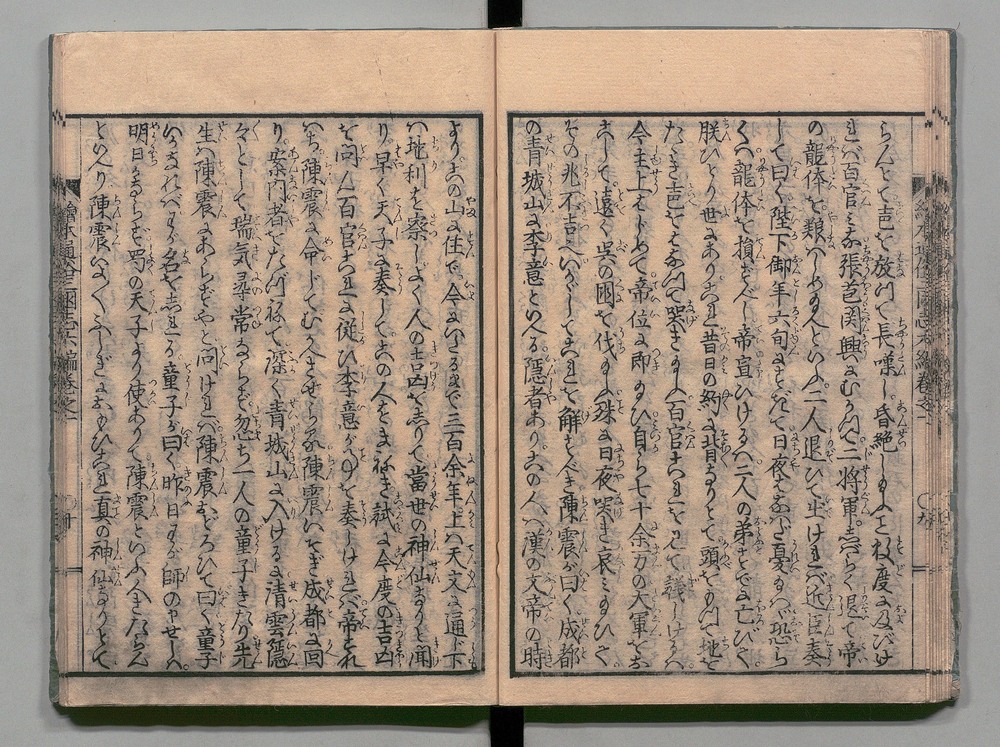 らんとて声を放つて長嘆し昏絶しまふこと数度に及びけ
れバ百官ミな張苞関興にむかつて二将軍しバらく退て帝
の龍体を頼へしめまへといふ二人退ひて出けれバ近臣奏
して曰く陛下御年六旬にすぎて日夜かほど憂まハゞ恐ら
くハ龍体を損ぜん帝宣ひけるハ二人の弟すでに亡びて
朕ひとり世にありこれ昔日の約に背なりとて頭をもつて地を
たゝき声をはなつて哭きまへバ百官これを見て議しけるハ
今主上はじめて帝位に即まひ自ら七十余万の大軍をお
こして遠く呉の国を伐まふ殊に日夜哭き哀ミまひて
その兆不吉といかゞしてこれを解べき陳震が曰く成都
の青城山に李意といへる隠者ありこの人ハ漢の文帝の時
よりこの山に住で今にいたるまで三百余年上ハ天文に通じ下
ハ地利を察しよく人の吉凶をしりて當世の神仙なりと聞
り早く天子に奏してこの人をまねき試に今度の吉凶
を問ん百官これに従ひ李意が事を奏しけれバ帝これ
ハち陳震に命じてむかへさせらる陳震いそぎ成都に回
り案内者をたづねて深く青城山に入けるに清雲隠
々として瑞気尋常ならず忽ち一人の童子きたり先
生ハ陳震にあらずやと問けれバ陳震おどろひて曰く童子
いかなれバわが名をしれる童子が曰く昨日わが師のやせしハ
明日かならず蜀の天子より使あつて陳震といふ人きたらん
といへり陳震いよ〱ふしぎにおもひこれ真の神仙なりとて
繪本通俗三國志六編巻之一